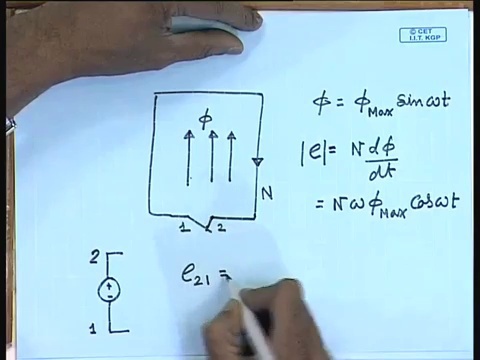 © CET
I.I.T. KGP
ϕ
ϕ = ϕ_Max sin ωt
|e| = N dϕ/dt
= N ω ϕ_Max cos ωt
N
1 2
2
+
-
1
e_21 =